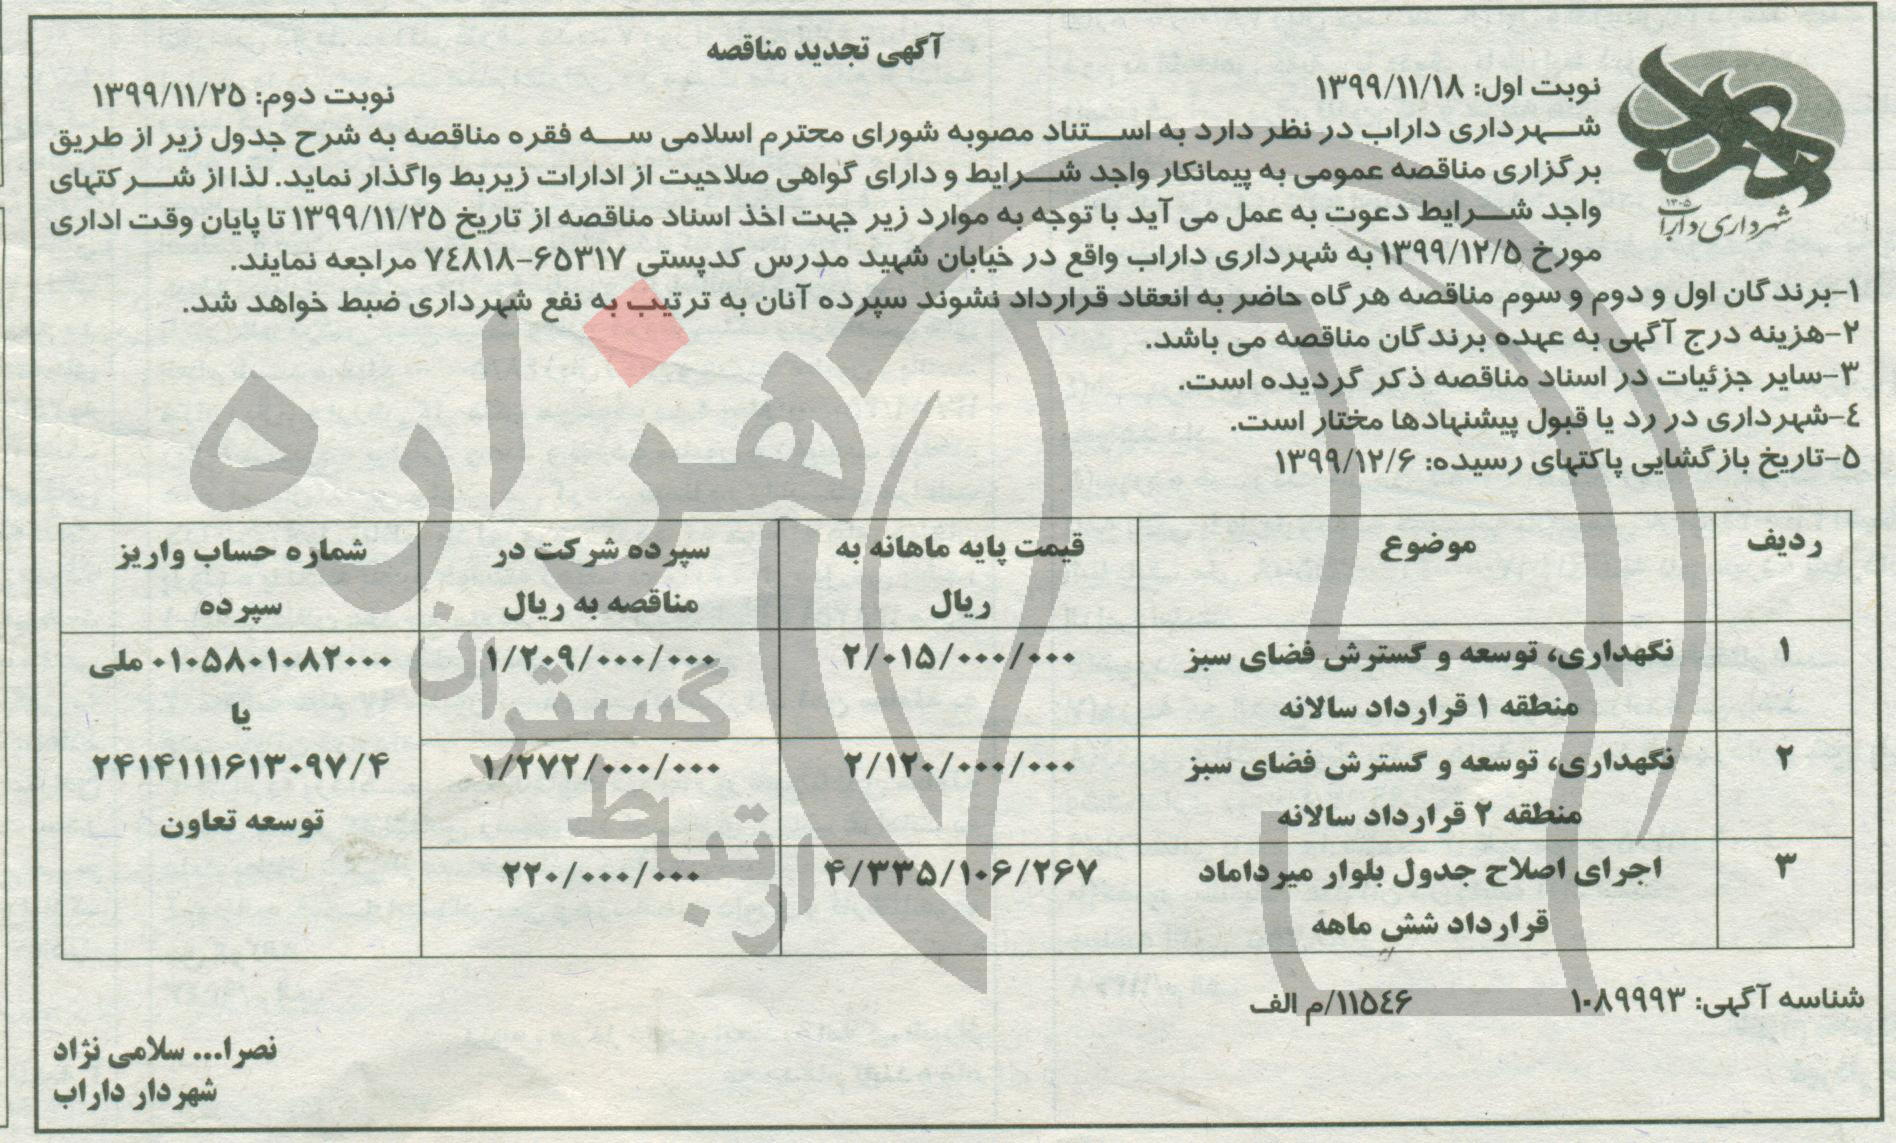 آگهی تجدید مناقصه
نوبت اول: ۱۳۹۹/۱۱/۱۸
نوبت دوم: ۱۳۹۹/۱۱/۲۵
شهرداری داراب در نظر دارد به استناد مصوبه شورای محترم اسلامی سه فقره مناقصه به شرح جدول زیر از طریق
برگزاری مناقصه عمومی به پیمانکار واجد شرایط و دارای گواهی صلاحیت از ادارات زیربط واگذار نماید. لذا از شرکتهای
واجد شرایط دعوت به عمل می آید با توجه به موارد زیر جهت اخذ اسناد مناقصه از تاریخ ۱۳۹۹/۱۱/۲۵ تا پایان وقت اداری
مورخ ۱۳۹۹/۱۲/۵ به شهرداری داراب واقع در خیابان شهید مدرس کدپستی ۶۵۳۱۷-۷٤۸۱۸ مراجعه نمایند.
۱-برندگان اول و دوم و سوم مناقصه هرگاه حاضر به انعقاد قرارداد نشوند سپرده آنان به ترتیب به نفع شهرداری ضبط خواهد شد.
۲-هزینه درج آگهی به عهده برندگان مناقصه می باشد.
۳-سایر جزئیات در اسناد مناقصه ذکر گردیده است.
٤-شهرداری در رد یا قبول پیشنهادها مختار است.
۵-تاریخ بازگشایی پاکتهای رسیده: ۱۳۹۹/۱۲/۶
شهرداری داراب
۱۳۰۵
ردیف
موضوع
قیمت پایه ماهانه به
ریال
سپرده شرکت در
مناقصه به ریال
شماره حساب واریز
سپرده
۱
نگهداری، توسعه و گسترش فضای سبز
منطقه ۱ قرارداد سالانه
۲/۰۱۵/۰۰۰/۰۰۰
۱/۲۰۹/۰۰۰/۰۰۰
۰۱۰۵۸۰۱۰۸۲۰۰۰ ملی
یا
۲۴۱۴۱۱۱۶۱۳۰۹۷/۴
توسعه تعاون
۲
نگهداری، توسعه و گسترش فضای سبز
منطقه ۲ قرارداد سالانه
۲/۱۲۰/۰۰۰/۰۰۰
۱/۲۷۲/۰۰۰/۰۰۰
۳
اجرای اصلاح جدول بلوار میرداماد
قرارداد شش ماهه
۴/۳۳۵/۱۰۶/۲۶۷
۲۲۰/۰۰۰/۰۰۰
شناسه آگهی: ۱۰۸۹۹۹۳
۱۱۵٤۶/م الف
نصرا... سلامی نژاد
شهردار داراب
هزاره
گستران
ارتباط